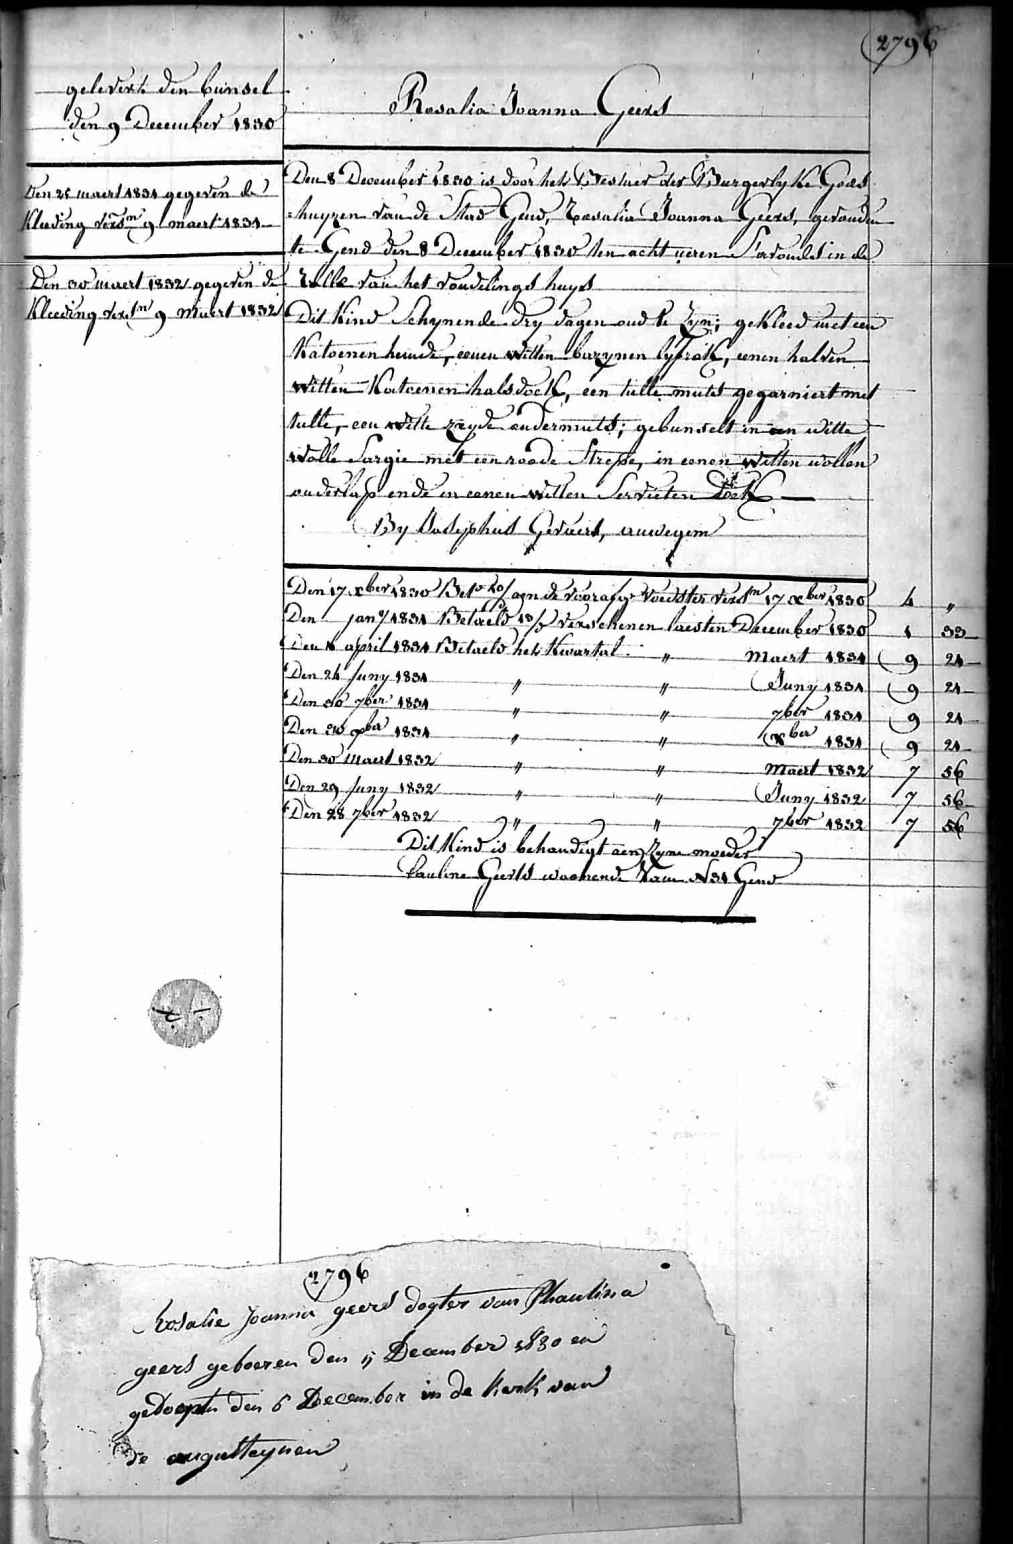 2796
gelevert den bunsel
den 9 December 1830
Den 25 maert 1831 gegeven de
Kleeding versn 9 maert 1831
Den 30 maert 1832 gegeven de
Kleeding versn 9 Maert 1832
Rosalia Joanna Geers
Den 8 December 1830 is door het Bestier der Burgerlyke Gods
huyzen van de Stad Gend, Rosalia Joanna Geers, gevonden
te Gend den 8 December 1830 ten acht ueren S'avonds in de
Rolle van het vondelings huys
Dit Kind Schynende dry dagen oud te Zyn; gekleed met een
Katoenen hemde, eenen witten bazynen lyfrok, eenen halven
witten Katoenen halsdoek, een tulle muts gegarniert met
tulle, een witte zeyde ondermuts; gebunselt in een witte
wolle Sargie met een roode Strepe, in eenen witten wollen
onderlap ende in eenen witten Servieten Doek
By Josephus Gevaert, auwegem
Den 17 xber 1830 Bet. aen de voorafg. voedster versn 17 xber 1830 4 "
Den jany 1831 Betaeld verschenen laesten December 1830 1 33
Den april 1831 Betaeld het Kwartal " Maert 1831 9 24
Den 24 Juny 1831 " " Juny 1831 9 24
Den 30 7ber 1831 " " 7ber 1831 9 24
Den 30 xber 1831 " " xber 1831 9 24
Den 30 maert 1832 " " Maert 1832 7 56
Den 29 Juny 1832 " " Juny 1832 7 56
Den 28 7ber 1832 " " 7ber 1832 7 56
Dit Kind is behandigt aen Zyne moeder
Pauline Geerts woonende N31 Gend
2796
Rosalie Joanna geers dogter van Phaulina
geers geboeren den 5 December 1830 en
gedoopt den 6 December in de kerk van
de augusteynen